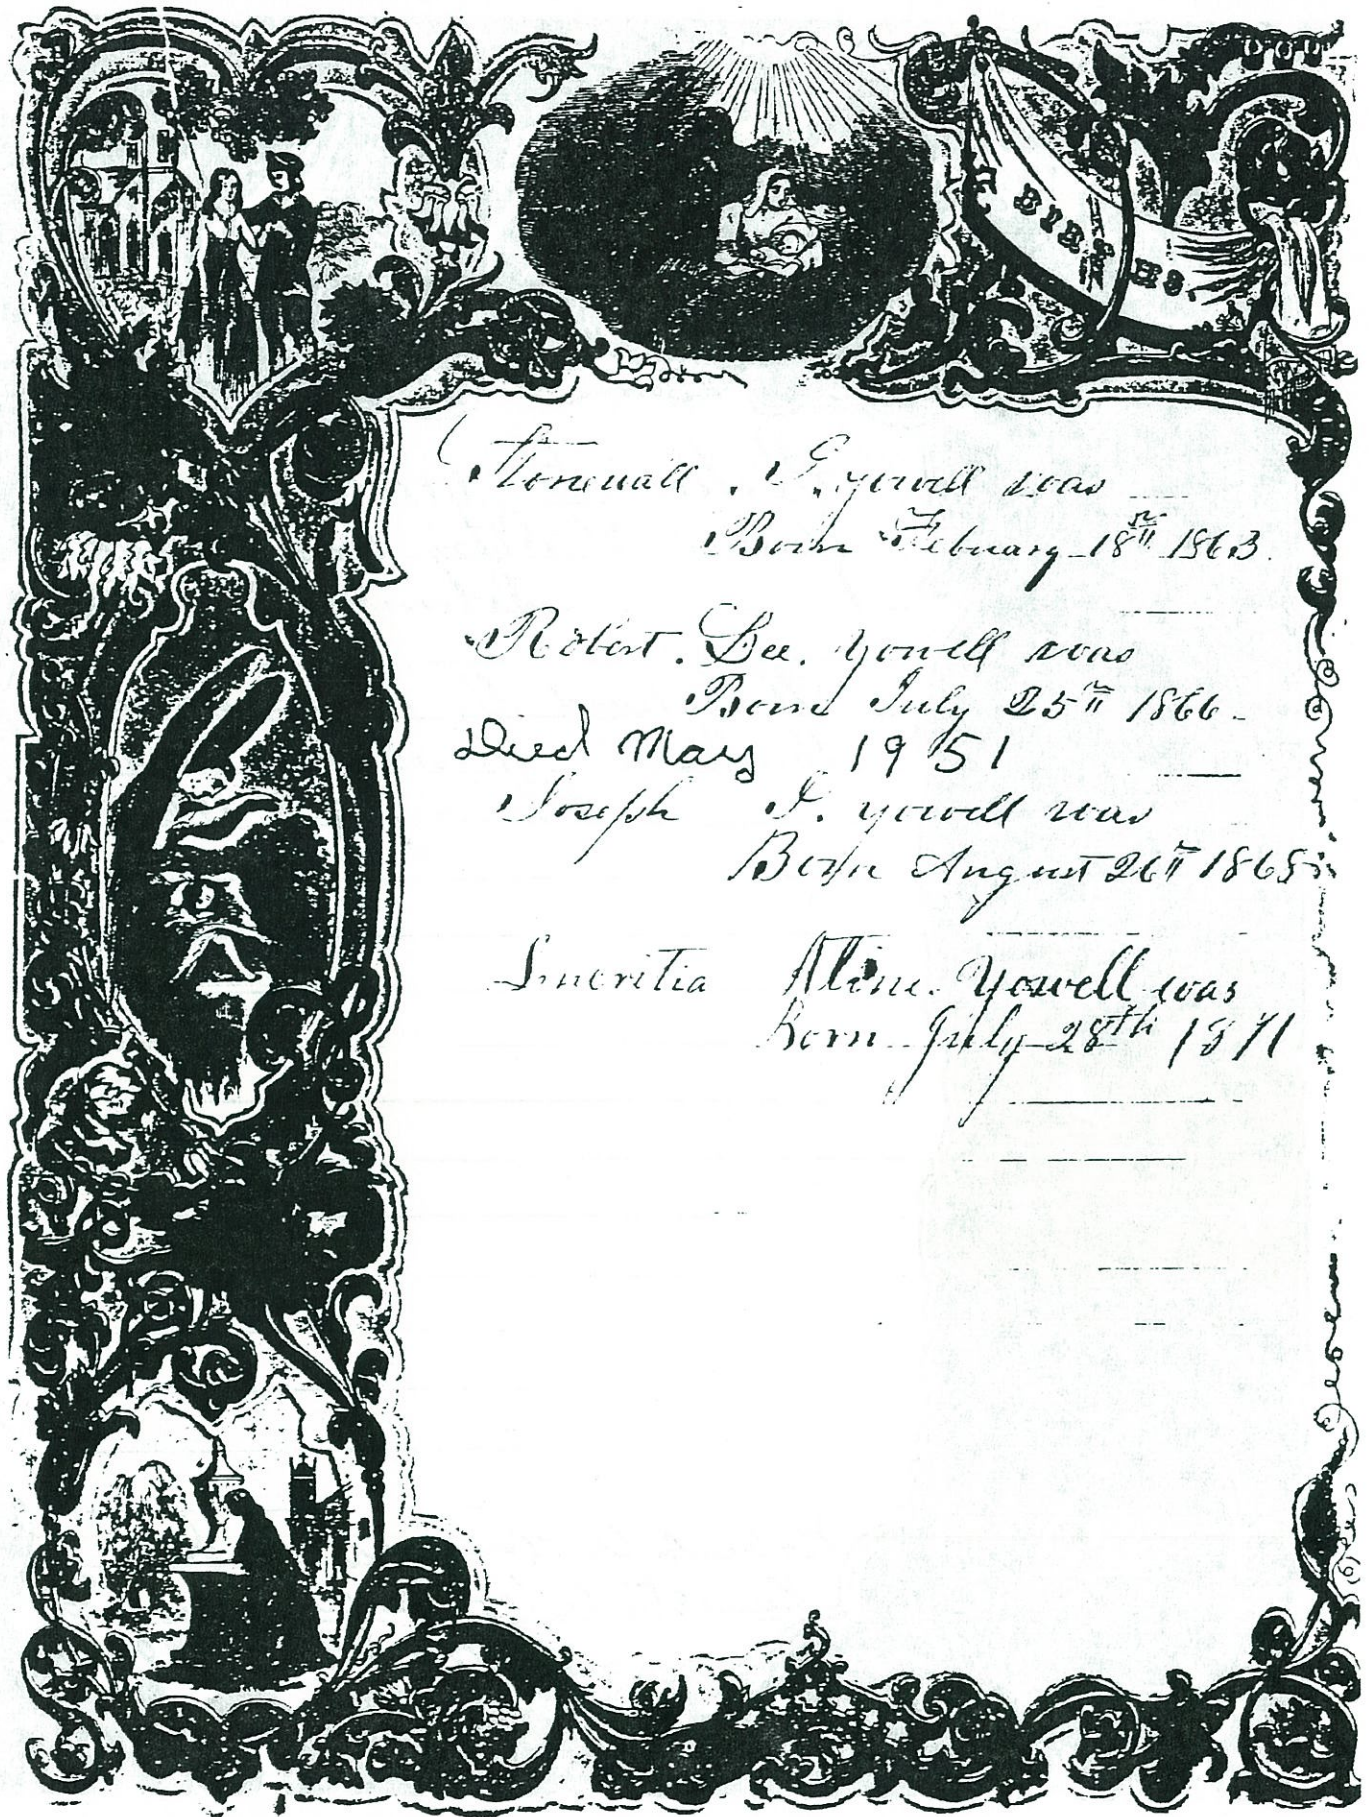 BIRTHS.
Stonewall . J. yowell was
Born February 18th 1863.
Robert . Lee. yowell was
Born July 25th 1866
Died May 1951
Joseph I. yowell was
Born August 26th 1868
Lucritia Aline. Yowell was
born July 28th 1871